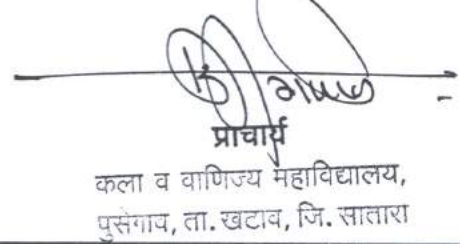 प्राचार्य
कला व वाणिज्य महाविद्यालय,
पुसेगाव, ता. खटाव, जि. सातारा